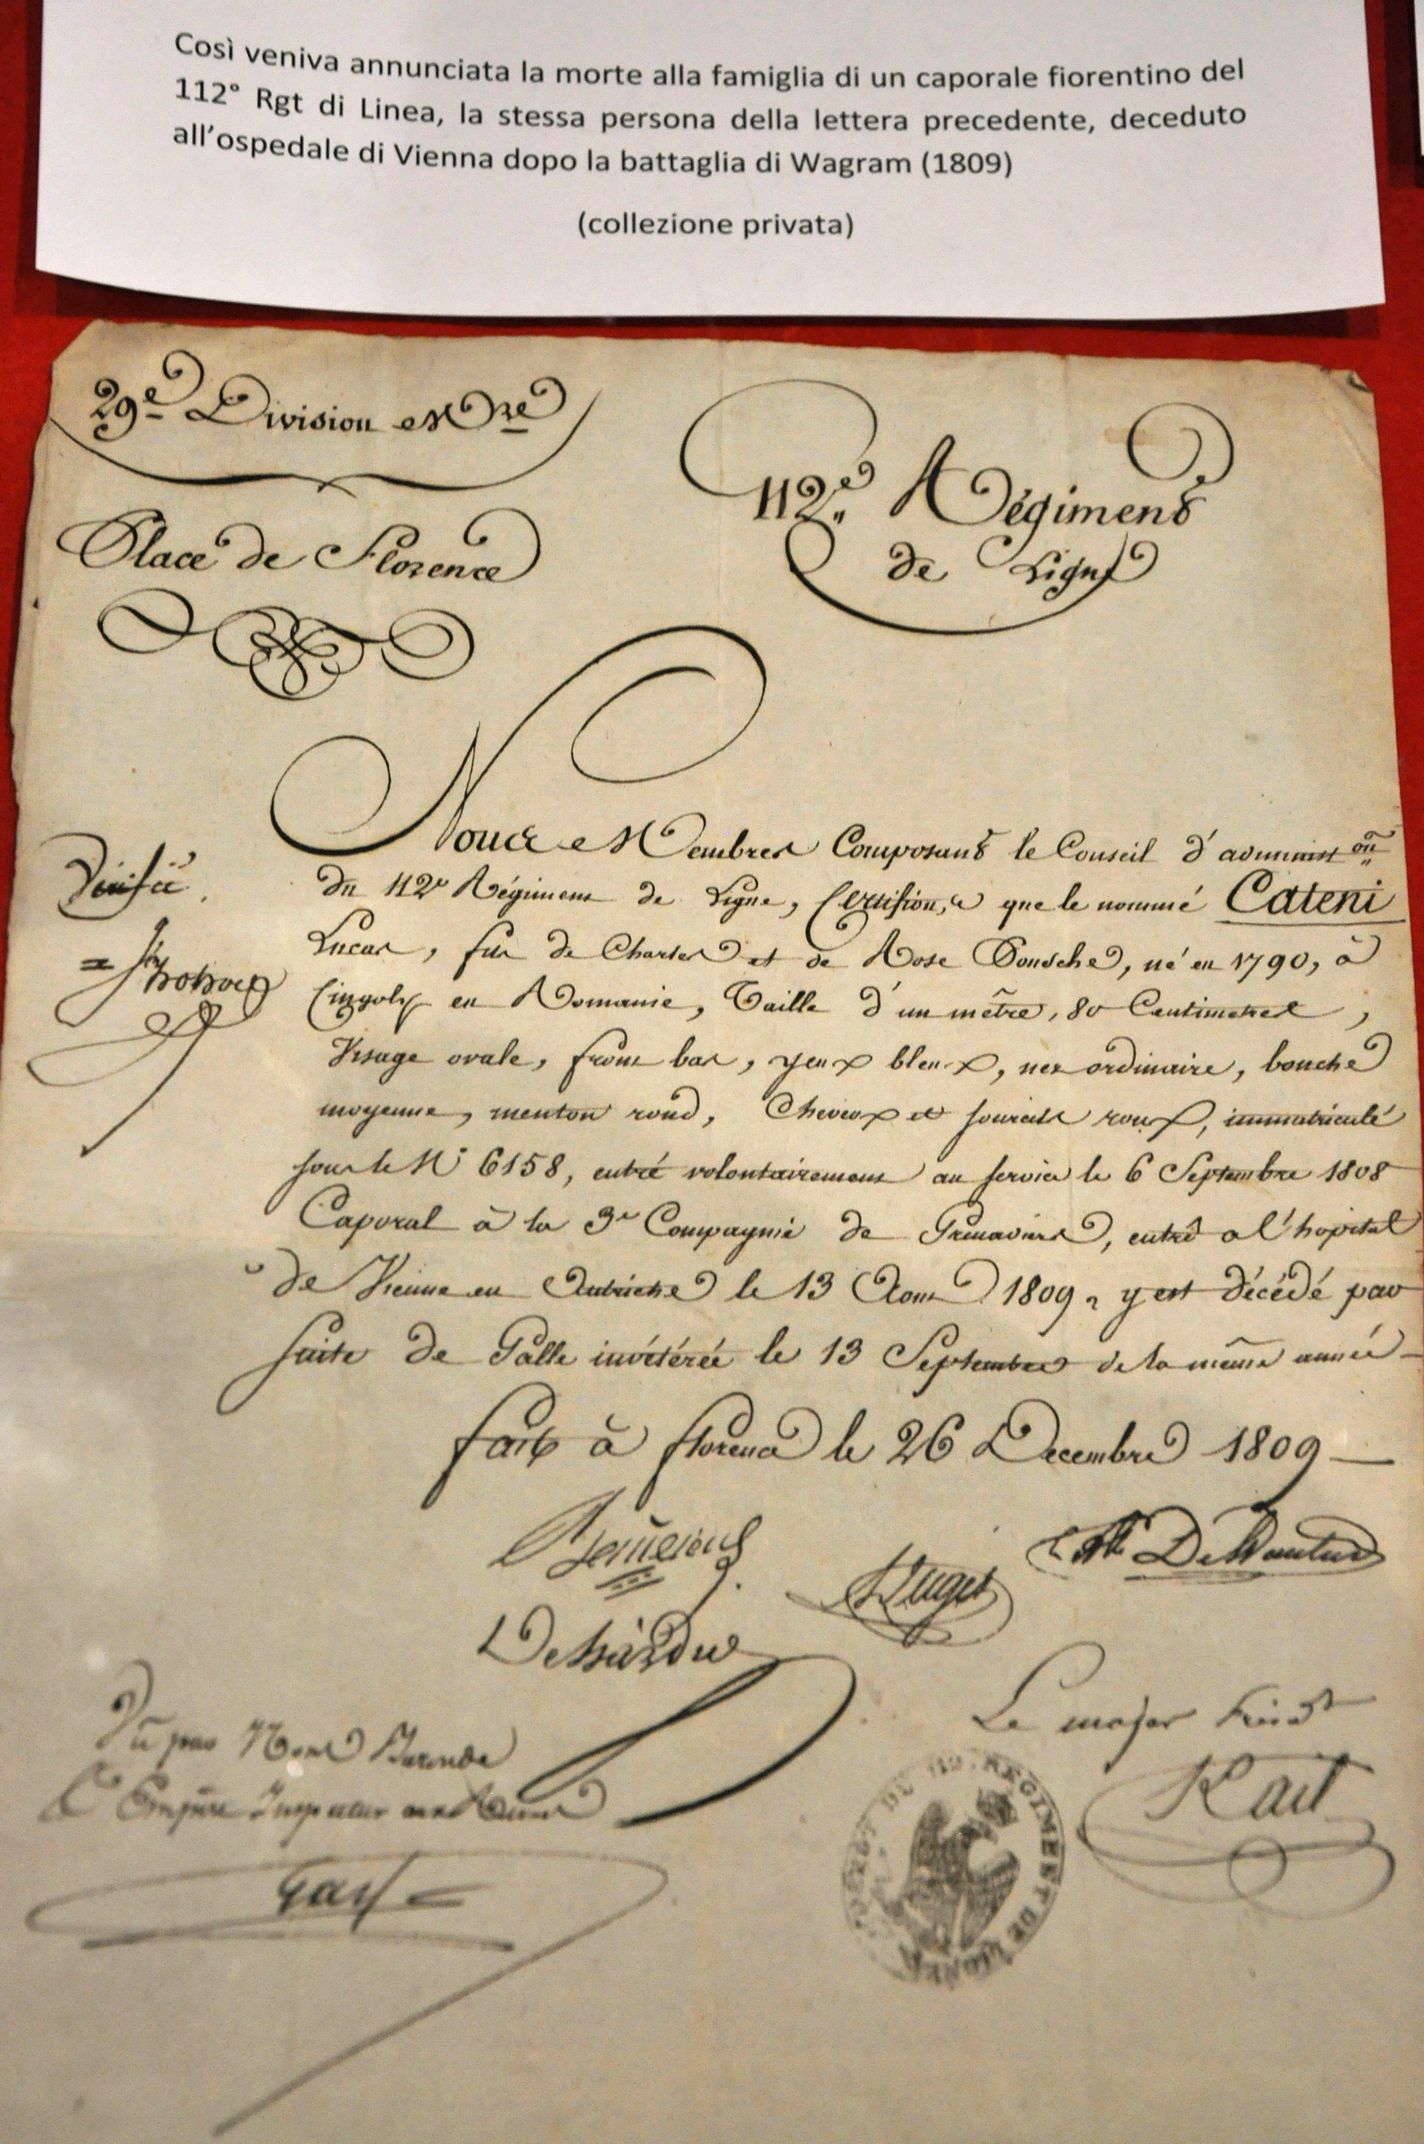 Così veniva annunciata la morte alla famiglia di un caporale fiorentino del
112° Rgt di Linea, la stessa persona della lettera precedente, deceduto
all'ospedale di Vienna dopo la battaglia di Wagram (1809)
(collezione privata)
29e Division Mre
Place de Florence
112e Régiment
de Ligne
Nous Membres Composant le Conseil d'administ.on
du 112e Régiment de Ligne, Certifions que le nommé Cateni
Lucas, fils de Charles et de Rose Donsche, né en 1790, à
Cingoly en Romanie, Taille d'un mètre, 80 Centimetres,
Visage ovale, front bas, yeux bleux, nez ordinaire, bouche
moyenne, menton rond, Cheveux et sourcils roux, immatriculé
sous le N° 6158, entré volontairement au service le 6 Septembre 1808
Caporal à la 3e Compagnie de Grenadiers, entré a l'hopital
de Vienne en Autriche le 13 Aout 1809, y est décédé par
suite de Galle invétérée le 13 Septembre de la même année
Vérifié
fait à florence le 26 Decembre 1809
Huget
Le major
Vu par Nous
DU 112e REGIMENT DE LIGNE